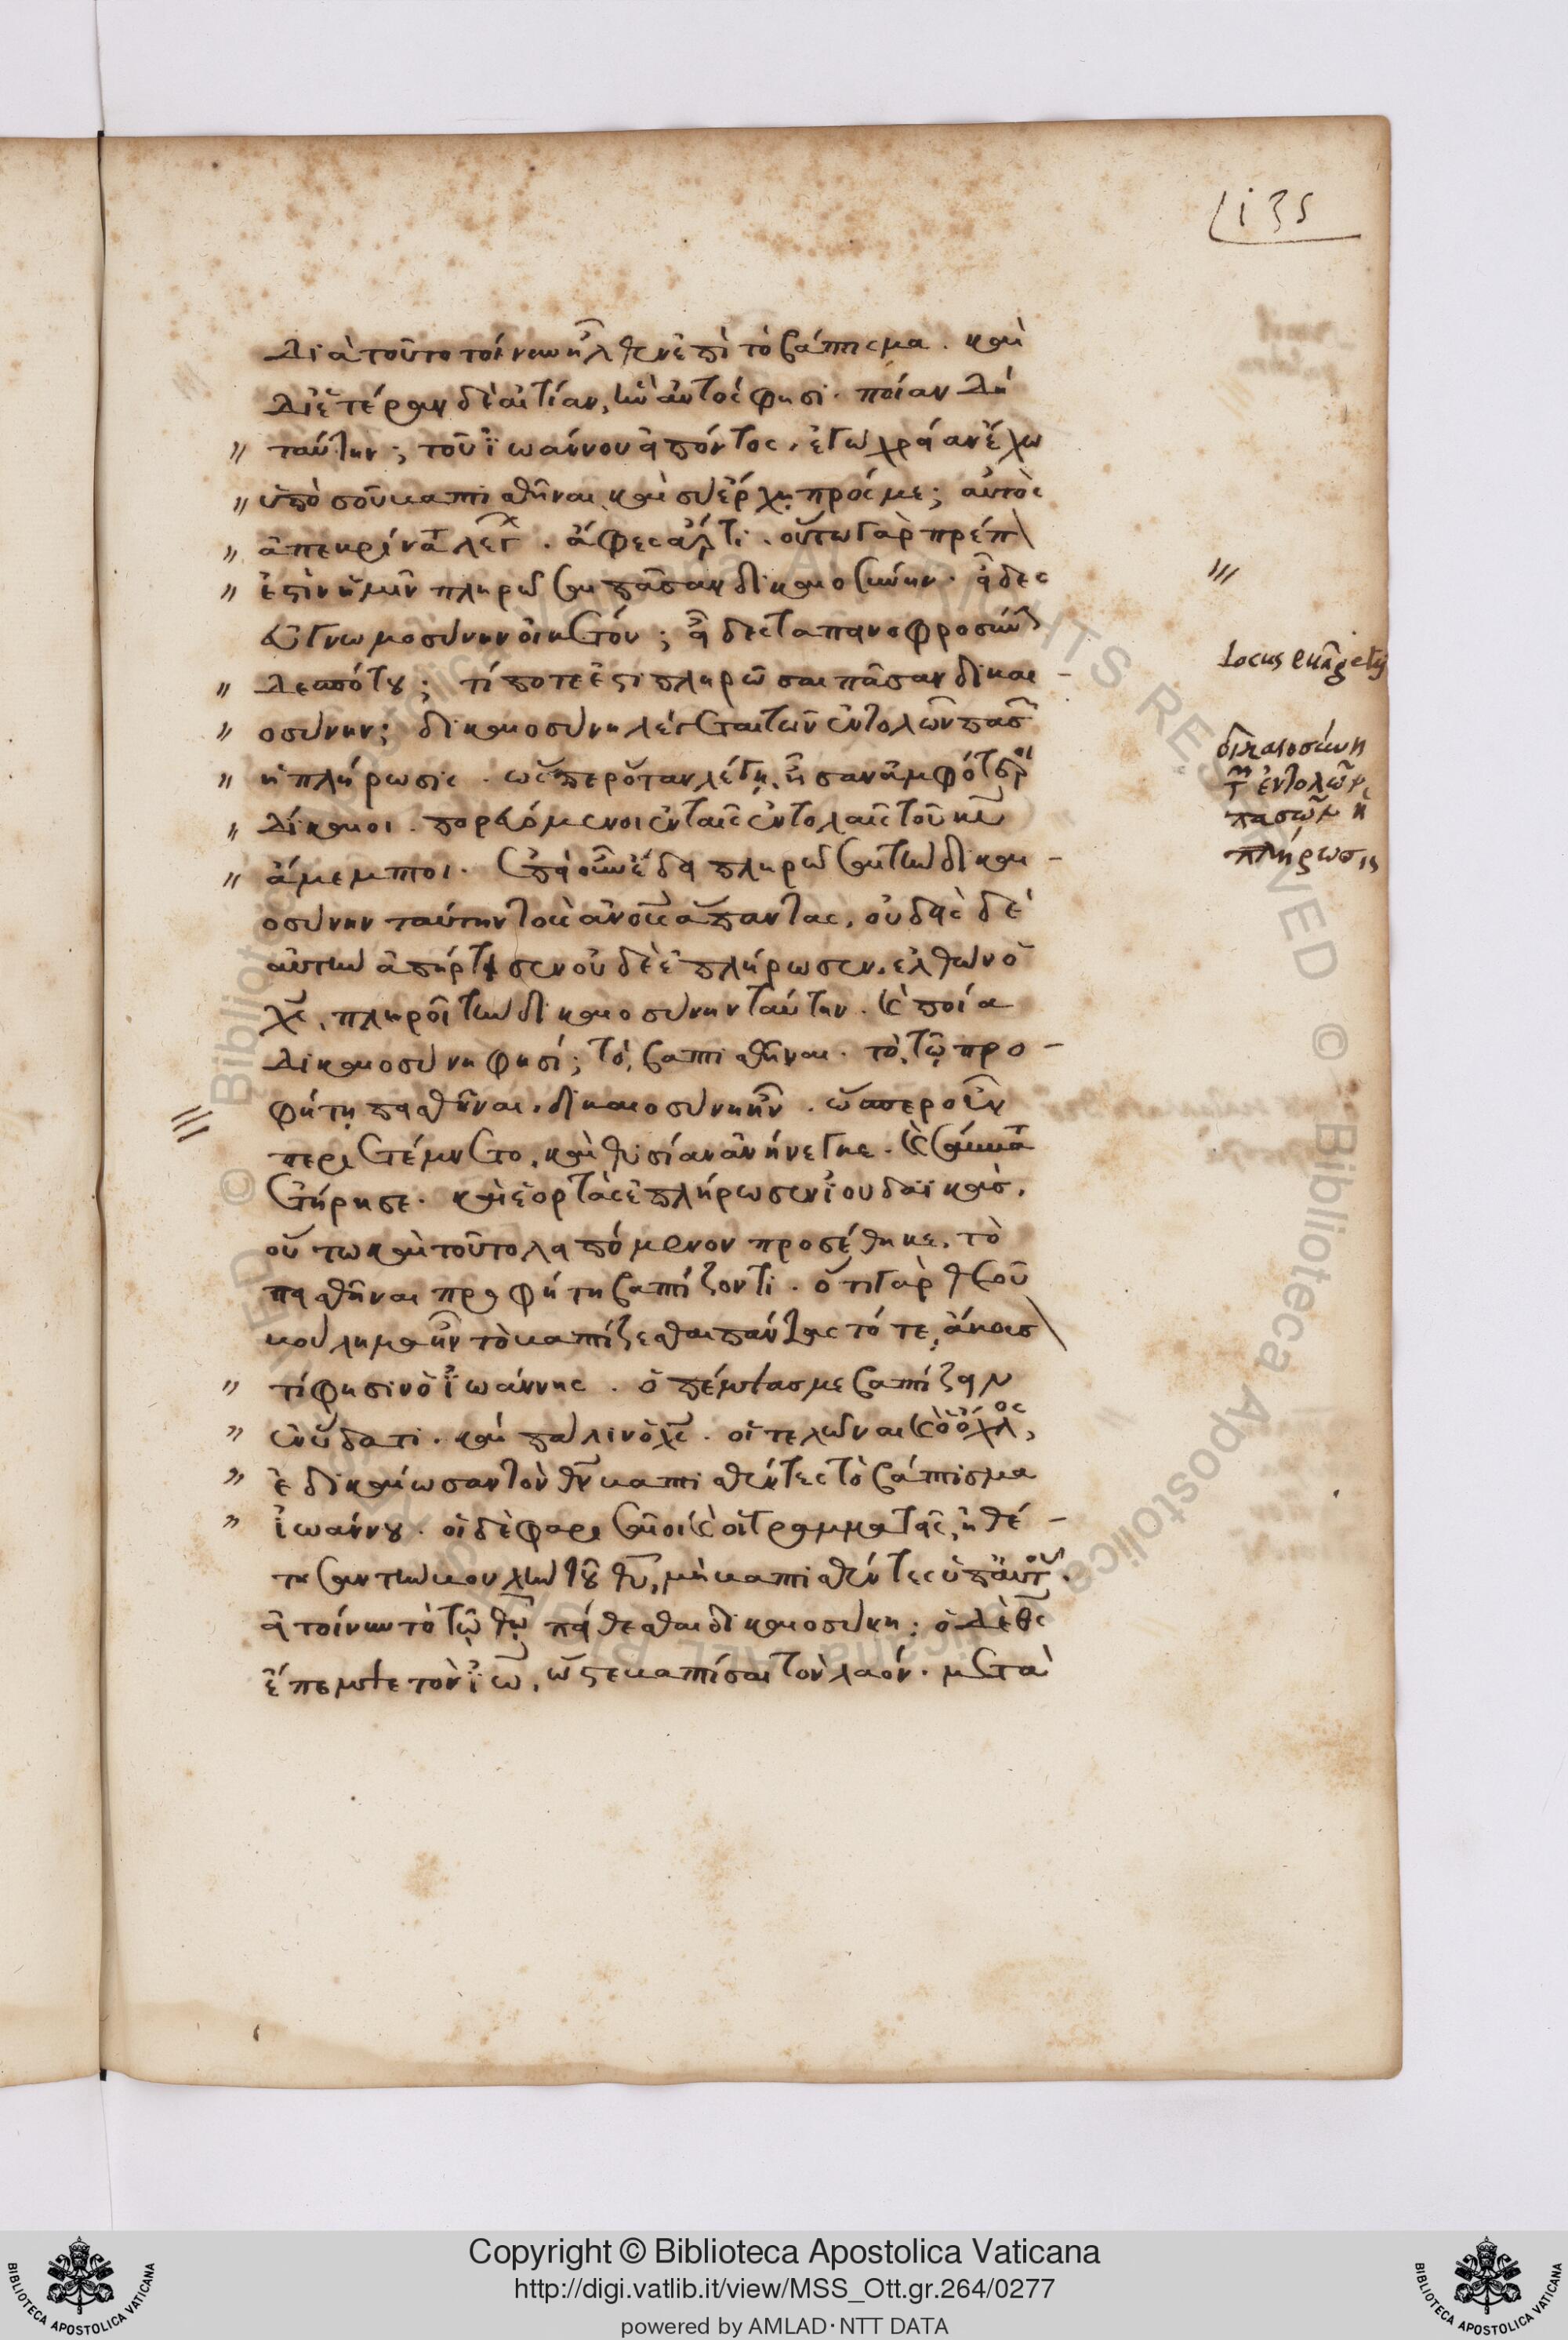 135
διὰ τοῦτο τοίνυν ἦλθεν ἐπὶ τὸ βάπτισμα. καὶ
δι' ἑτέραν δὲ αἰτίαν, ἣν αὐτός φησι. ποίαν δὴ
ταύτην; τοῦ ἰωάννου εἰπόντος, ἐγὼ χρείαν ἔχω
ὑπὸ σοῦ βαπτισθῆναι, καὶ σὺ ἔρχῃ πρός με; αὐτὸς
ἀπεκρίνατο λέγ. ἄφες ἄρτι. οὕτω γὰρ πρέπ
ἐστὶν ἡμῖν πληρῶσαι πᾶσαν δικαιοσύνην. εἶδες
εὐγνωμοσύνην οἰκέτου; εἶδες ταπεινοφροσύν
δεσπότου; τί ποτέ ἐστι πληρῶσαι πᾶσαν δικαι-
οσύνην; δικαιοσύνη λέγεται τῶν ἐντολῶν πασ
ἡ πλήρωσις. ὥσπερ ὅταν λέγῃ, ἦσαν ἀμφότεροι
δίκαιοι. πορευόμενοι ἐν ταῖς ἐντολαῖς τοῦ κυ
ἄμεμπτοι. ἐπεὶ οὖν ἔδει πληρῶσαι τὴν δικαι-
οσύνην ταύτην τοὺς ἀνους ἅπαντας, οὐδεὶς δὲ
αὐτὴν ἀπήρτισεν οὐδὲ ἐπλήρωσεν, ἐλθὼν ὁ
χς, πληροῖ τὴν δικαιοσύνην ταύτην. καὶ ποία
δικαιοσύνη φησί; τὸ βαπτισθῆναι. τὸ, τῷ προ-
φήτῃ πεισθῆναι, δικαιοσύνη ἦν. ὥσπερ οὖν
περιετέμνετο, καὶ θυσίαν ἀνήνεγκε. καὶ σάββατα
ἐτήρησε. καὶ ἑορτὰς ἐπλήρωσεν ἰουδαϊκάς.
οὕτω καὶ τοῦτο λειπόμενον προσέθηκε, τὸ
πεισθῆναι προφήτῃ βαπτίζοντι. ὅτι γὰρ θεοῦ
βούλημα ἦν τὸ βαπτίζεσθαι πάντας τότε, ἄκουσ
τί φησιν ὁ ἰωάννης. ὁ πέμψας με βαπτίζειν
ἐν ὕδατι. καὶ πάλιν ὁ χς. οἱ τελῶναι καὶ ὁ ὄχλος,
ἐδικαίωσαν τὸν θν βαπτισθέντες τὸ βάπτισμα
ἰωάννου. οἱ δὲ φαρισαῖοι καὶ οἱ γραμματεῖς, ἠθέ-
τησαν τὴν βουλὴν τοῦ θυ, μὴ βαπτισθέντες ὑπ' αὐτοῦ.
εἰ τοίνυν τὸ τῷ θω πείθεσθαι δικαιοσύνη; ὁ δὲ θς
ἔπεμψε τὸν ἰω, ὥστε βαπτίσαι τὸν λαόν. μετὰ
Locus euāgelij
δικαιοσύνη
τῶν ἐντολῶν
πασῶν ἡ
πλήρωσις
Copyright © Biblioteca Apostolica Vaticana
http://digi.vatlib.it/view/MSS_Ott.gr.264/0277
powered by AMLAD·NTT DATA
BIBLIOTECA APOSTOLICA VATICANA
BIBLIOTECA APOSTOLICA VATICANA